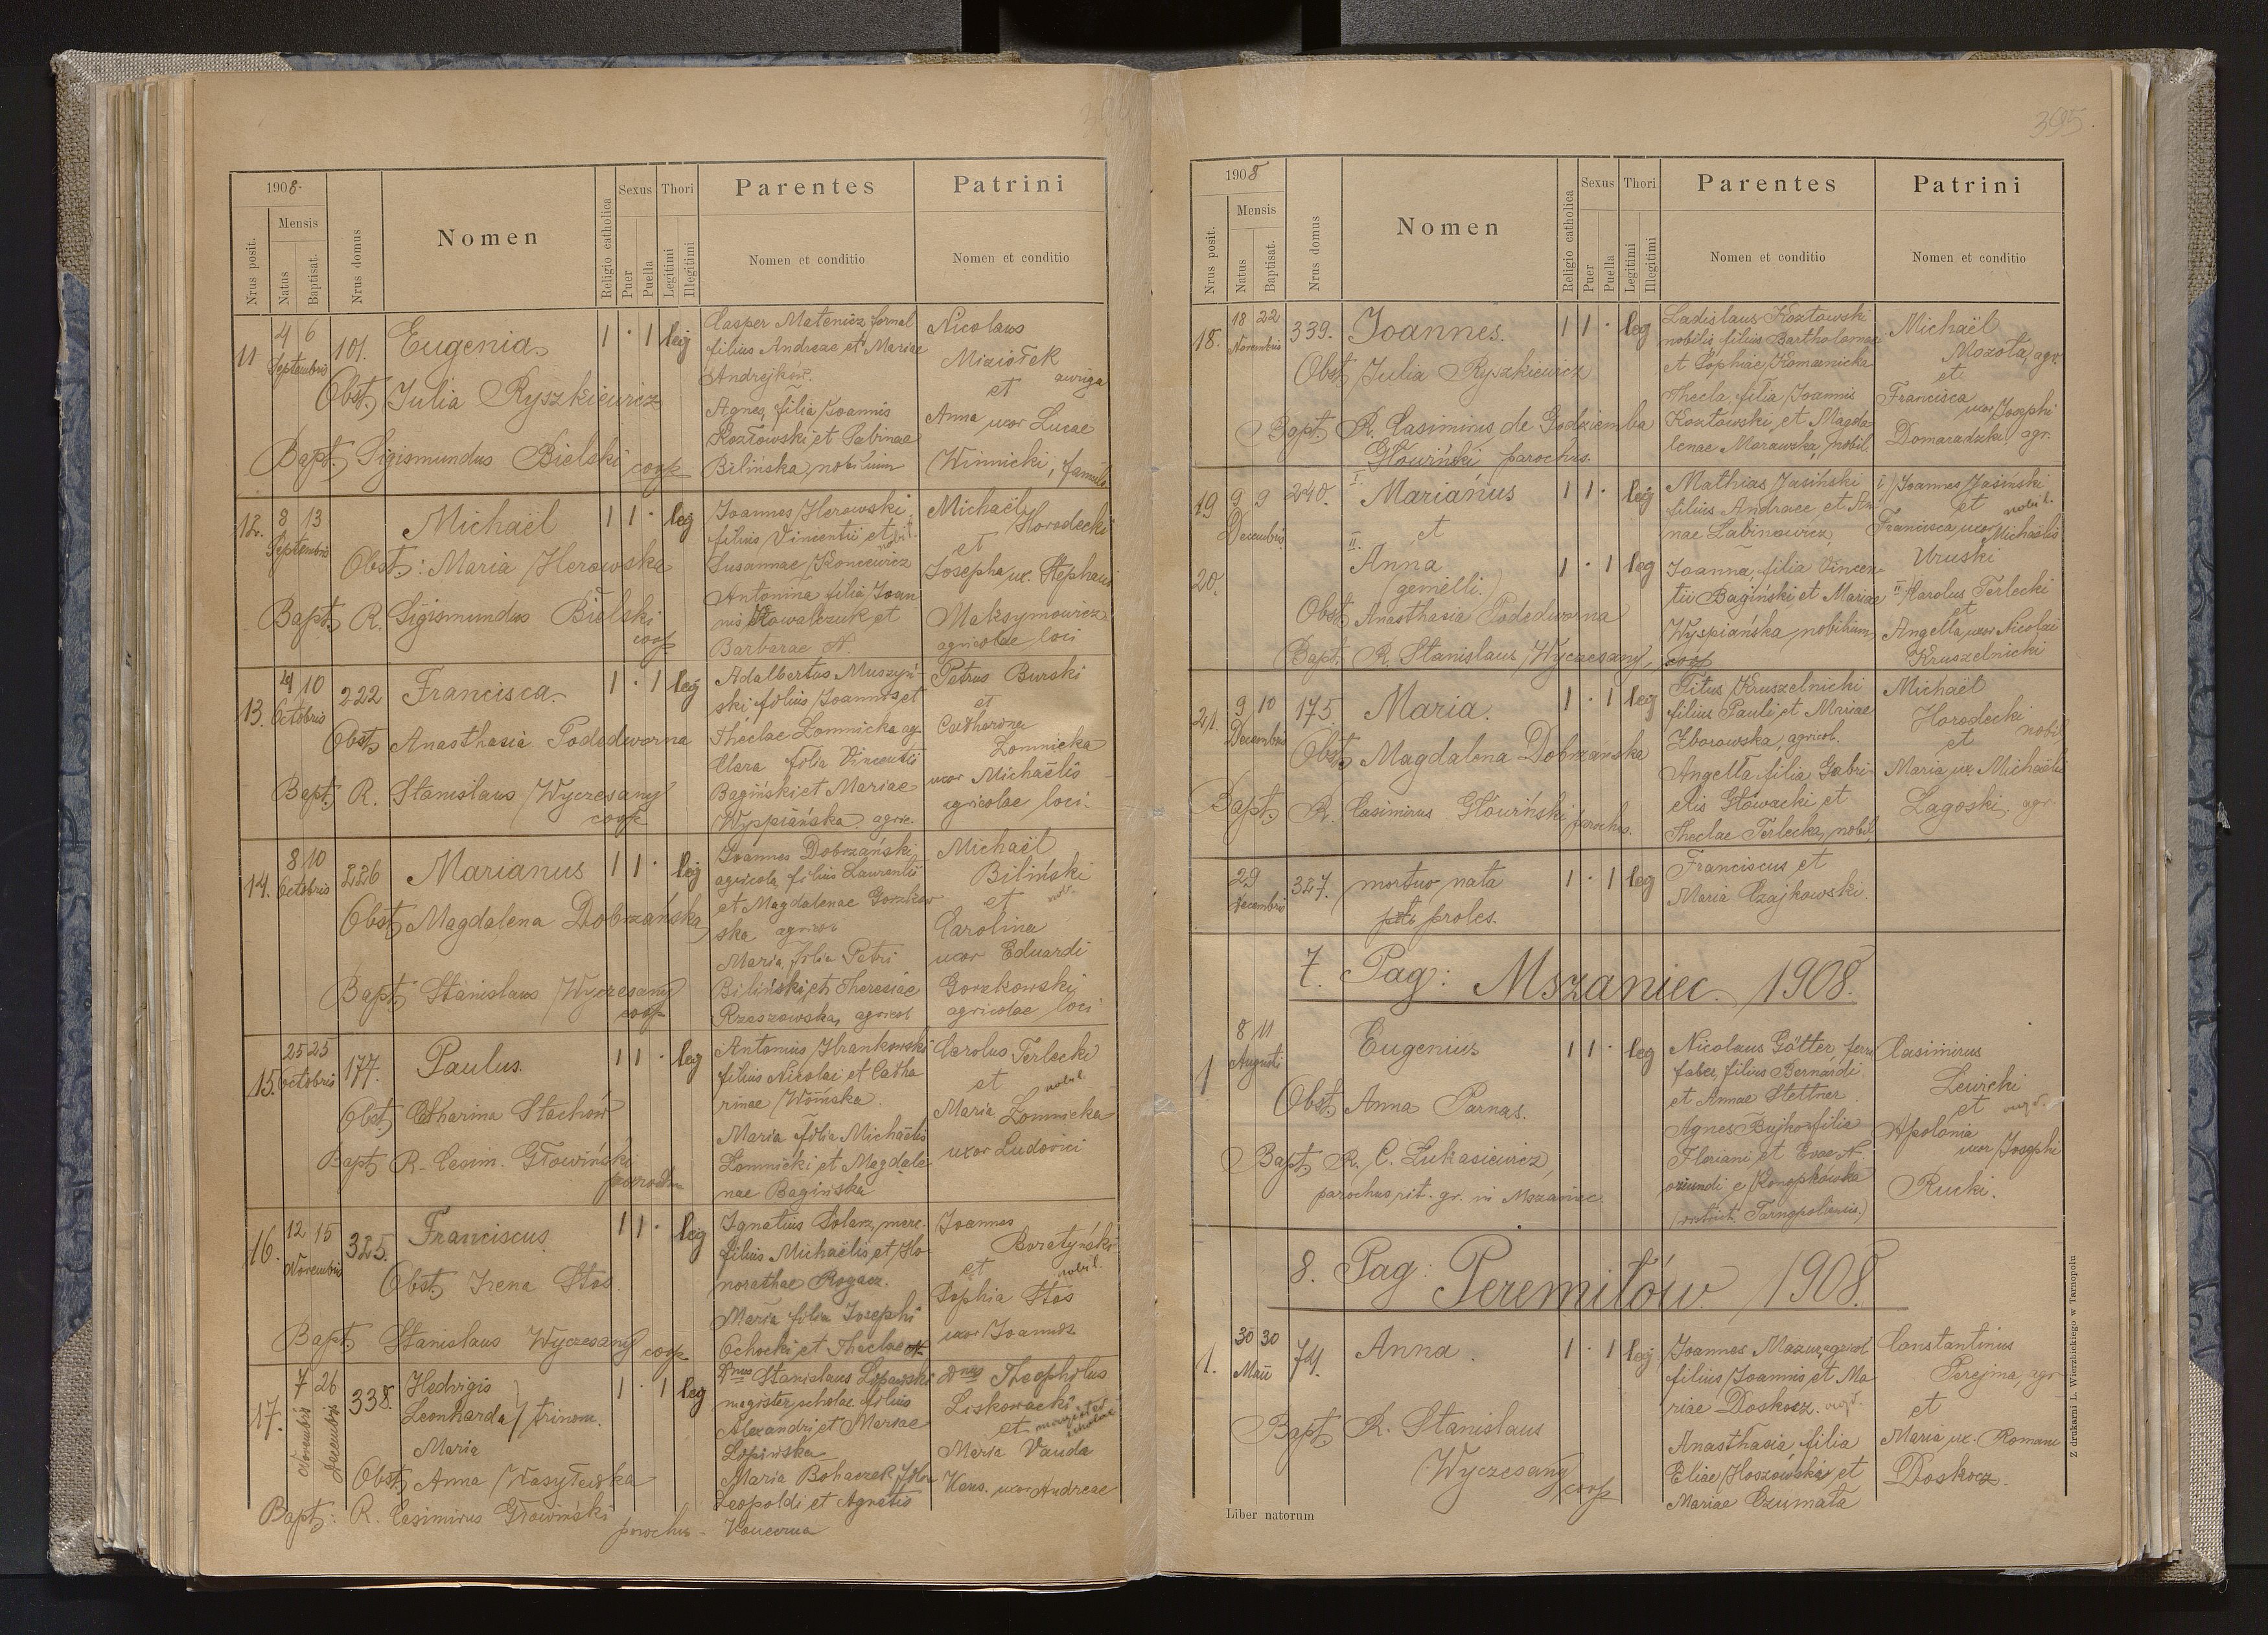 1908
Nrus posit.
Mensis
Natus
Baptisat.
Nrus domus
Nomen
Religio catholica
Sexus
Puer
Puella
Thori
Legitimi
Illegitimi
Parentes
Nomen et conditio
Patrini
Nomen et conditio
11
4 6
Septembris
101.
Eugenia
1 · 1 leg
Obst. Julia Ryszkiewicz
Bapt. Sigismundus Bielski coop
Casper Matenicz fornal
filius Andreae et Mariae
Andrejków.
Agnes filia Joannis
Kozłowski et Sabinae
Bilińska nobilium
Nicolaus
Miziołek
auriga
et
Anna uxor Lucae
Winnicki, famula
12.
8 13
Septembris
Michaël
1 1 · leg
Obst: Maria Herowska
Bapt. R. Sigismundus Bielski
coop
Joannes Herowski
filius Vincentii et nobil.
Susannae Koncewicz
Antonina filia Joan
nis Kowalczuk et
Barbarae N.
Michaël
Horodecki
et
Josepha ux. Stephani
Maksymowicz
agricolae loci
13.
4 10
Octobris
222
Francisca
1 · 1 leg
Obst. Anasthasia Pododworna
Bapt. R. Stanislaus Wyczesany
coop
Adalbertus Muszyń-
ski filius Joannis et
Theclae Łomnicka ag.
Clara filia Vincentii
Bagiński et Mariae
Wyspiańska agric.
Petrus Burski
et
Catharina
Łomnicka
uxor Michaëlis
agricolae loci.
14.
8 10
Octobris
226
Marianus
1 1 · leg
Obst. Magdalena Dobrzańska
Bapt. Stanislaus Wyczesany
coop
Joannes Dobrzański
agricola, filius Laurentii
et Magdalenae Gorzkow
ska agricol
Maria, filia Petri
Biliński et Theresiae
Rzeszowska, agricol
Michaël
Biliński
et
Carolina
uxor Eduardi
Gorzkowski
agricolae loci
15.
25 25
Octobris
177.
Paulus.
1 1 · leg
Obst. Catharina Stachów
Bapt. R. Casim. Głowiński
parochus
Antonius Hrankowski
filius Nicolai et Catha
rinae Wońska.
Maria filia Michaëlis
Łomnicki et Magdale
nae Bagińska
Carolus Terlecki
et nobil.
Maria Łomnicka
uxor Ludovici
16.
12 15
Novembris
325.
Franciscus.
1 1 · leg
Obst. Irena Stos.
Bapt. Stanislaus Wyczesany coop
Ignatius Solarz, merc.
filius Michaëlis et Ho
norathae Rogacz.
Maria filia Josephi
Ochocki et Theclae N.
Joannes
Boratyński
et nobil.
Sophia Stos
uxor Joannis
17.
7 26
Novembris
Decembris
338.
Hedvigis
Leonharda trinom.
Maria
1 · 1 leg
Obst. Anna Wasylewska
Bapt: R. Casimirus Głowiński
parochus -
Dnus Stanislaus Lipiński
magister scholae filius
Alexandri et Mariae
Lipińska
Maria Bohaczek filia
Leopoldi et Agnetis
Dnus Theophilus
Liskowacki
et magister scholae
Maria Vanda
uxor Andreae
395
1908
Nrus posit.
Mensis
Natus
Baptisat.
Nrus domus
Nomen
Religio catholica
Sexus
Puer
Puella
Thori
Legitimi
Illegitimi
Parentes
Nomen et conditio
Patrini
Nomen et conditio
18.
18 22
Novembris
339.
Joannes.
1 1 · leg
Obst. Julia Ryszkiewicz
Bapt. R. Casimirus de Godziemba
Głowiński parochus.
Ladislaus Kozłowski
nobilis filius Bartholomaei
et Sophiae Romanicka
Thecla, filia Joannis
Kozłowski, et Magda
lenae Morawska, nobil.
Michaël
Mozola, agr.
et
Francisca
uxor Josephi
Domaradzka, agr.
19
20.
9 9
Decembris
240.
I. Marianus
1 1 · leg
et
II. Anna
1 · 1 leg
(gemelli.)
Obst. Anasthasia Pododworna
Bapt. R. Stanislaus Wyczesany, coop
Mathias Jasiński
filius Andreae et An
nae Łabinowicz,
Joanna, filia Vincen
tii Bagiński et Mariae
Wyspiańska nobilium
I) Joannes Jasiński
et nobil.
Francisca uxor Michaëlis
Uruski
II) Carolus Terlecki
et
Angella, uxor Nicolai
Kruszelnicki
21.
9 10
Decembris
175.
Maria.
1 · 1 leg
Obst. Magdalena Dobrzańska
Bapt. R. Casimirus Głowiński parochus.
Titus Kruszelnicki
filius Pauli et Mariae
Zborowska, agricol.
Angella filia Gabri
elis Głowacki et
Theclae Terlecka, nobil.
Michaël
Horodecki
nobil
et
Maria ux. Michaëlis
Łagoski, agr.
29
Decembris
327.
mortuo nata
proles.
1 · 1 leg
Franciscus et
Maria Czajkowski.
7. Pag: Mszaniec. 1908.
1
8 11
Augusti
Eugenius
1 1 · leg
Obst. Anna Parnas.
Bapt. R. C. Łukasiewicz,
parochus rit. gr. in Mszaniec
Nicolaus Götter, ferri
faber, filius Bernardi
et Annae Stettner.
Agnes Bujko filia
Floriani et Evae N.
oriundi e Konopkówka
(district. Tarnopoliensis.)
Casimirus
Lewicki
et
Apolonia
uxor Josephi
Rucki.
8. Pag: Peremiłów 1908.
1.
30 30
Maii
74.
Anna.
1 · 1 leg
Bapt. R. Stanislaus
Wyczesany
coop
Joannes Mazur, agricol
filius Joannis et Ma
riae Doskocz.
Anasthasia filia
Eliae Hoszowski et
Mariae Czumała
Constantinus
Perejma, agr
et
Maria ux. Romani
Doskocz.
Liber natorum
Z drukarni L. Wierzbickiego w Tarnopolu